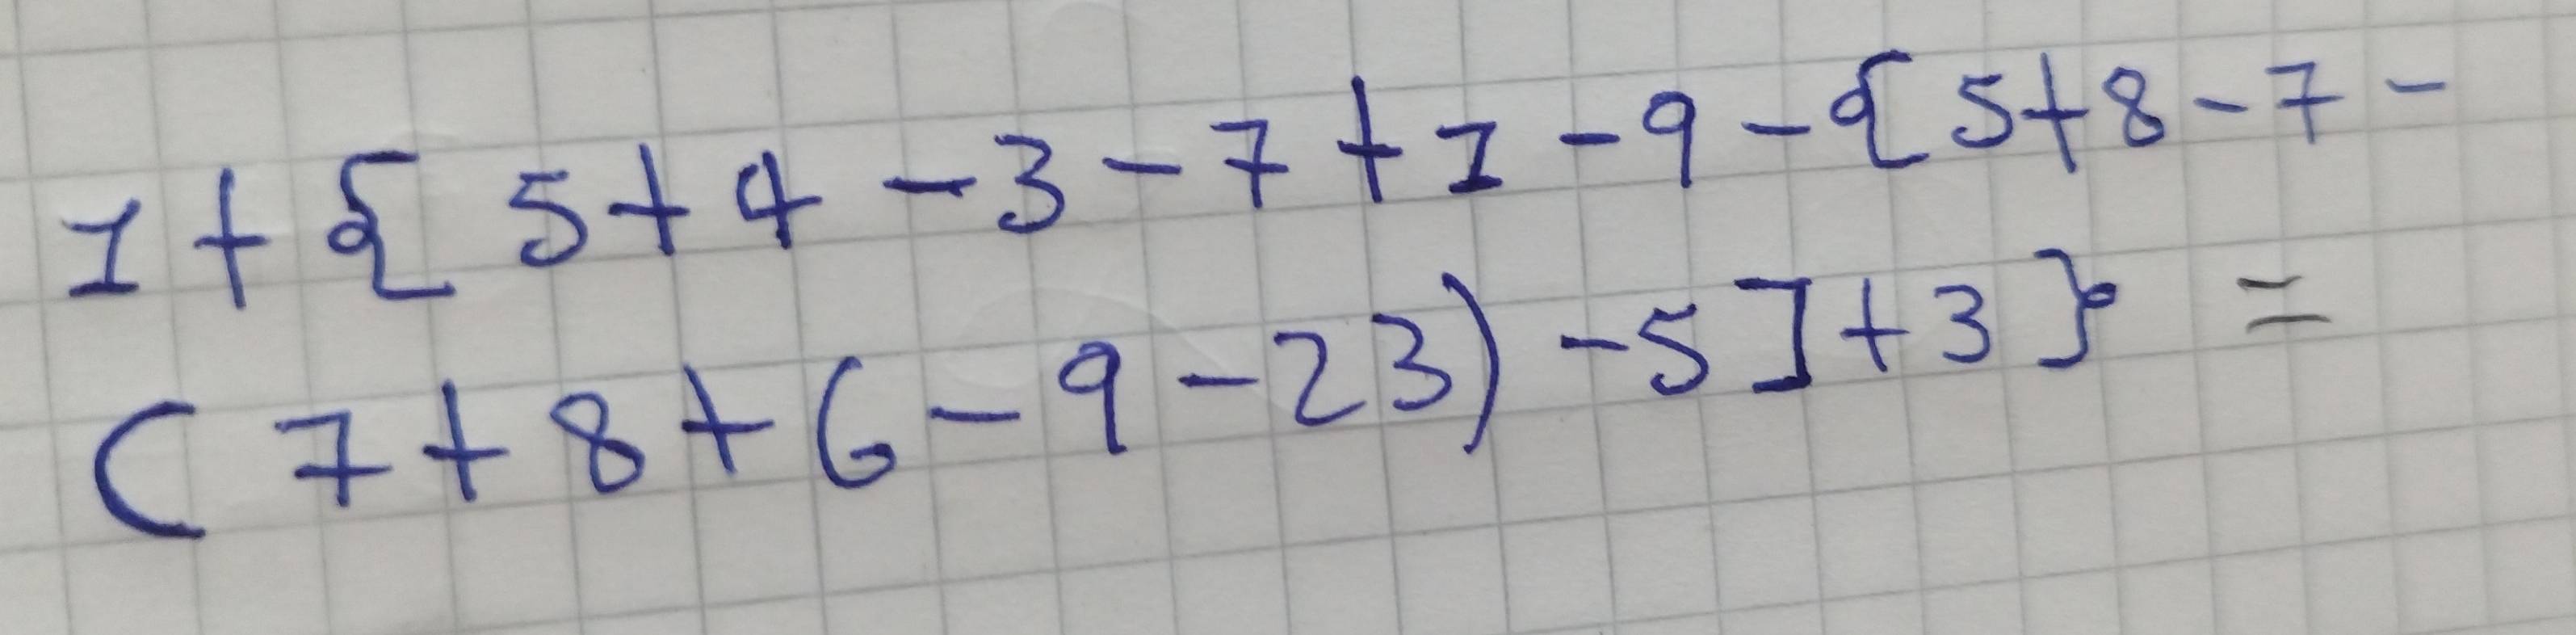 1+{5+4-3-7+1-9-{5+8-7-
(7+8+6-9-23)-5]+3}=